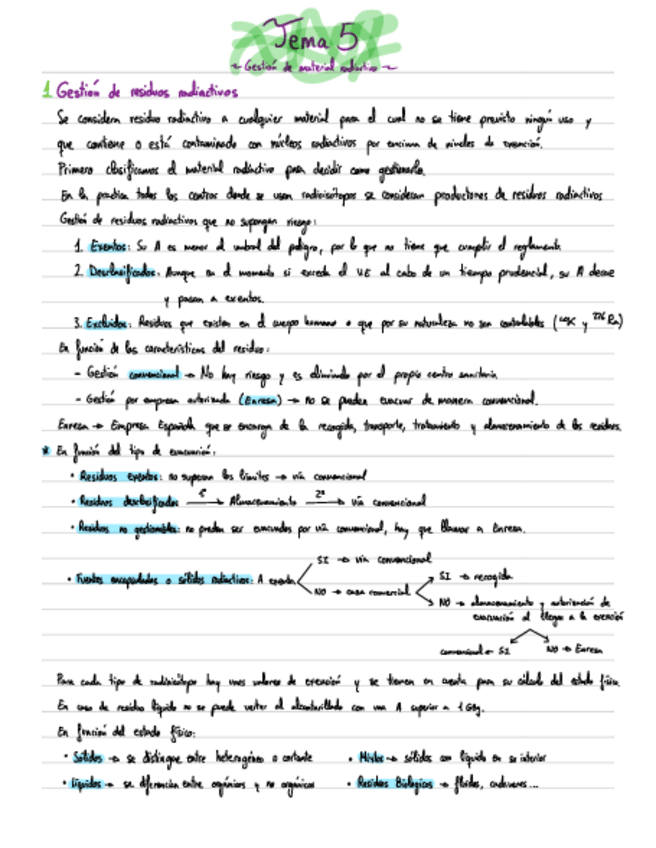 Tema 5
~ Gestión de material radiactivo ~
1 Gestión de residuos radiactivos
Se considera residuo radiactivo a cualquier material para el cual no se tiene previsto ningún uso y
que contiene o está contaminado con núcleos radiactivos por encima de niveles de exención.
Primero clasificamos el material radiactivo para decidir como gestionarlo.
En la practica todos los centros donde se usan radioisótopos se consideran productores de residuos radiactivos
Gestión de residuos radiactivos que no supongan riesgo:
1. Exentos: Su A es menor al umbral del peligro, por lo que no tiene que cumplir el reglamento
2. Desclasificados: Aunque en el momento si exceda el VE al cabo de un tiempo prudencial, su A decae
y pasan a exentos.
3. Excluidos: Residuos que existen en el cuerpo humano o que por su naturaleza no son controlables (⁴⁰K y ²²⁶Ra)
En función de las características del residuo:
- Gestión convencional → No hay riesgo y es eliminado por el propio centro sanitario.
- Gestión por empresa autorizada (Enresa) → no se pueden evacuar de manera convencional.
Enresa → Empresa Española que se encarga de la recogida, transporte, tratamiento y almacenamiento de los residuos.
* En función del tipo de evacuación:
• Residuos exentos: no superan los límites → vía convencional
• Residuos desclasificados 1º → Almacenamiento 2º → vía convencional
• Residuos no gestionables: no pueden ser evacuados por vía convencional, hay que llamar a Enresa.
SI → vía convencional
• Fuentes encapsuladas o sólidos radiactivos: A exenta
NO → casa comercial
SI → recogida
NO → almacenamiento y autorización de
evacuación al llegar a la exención
convencional ← SI NO → Enresa
Para cada tipo de radioisótopo hay unos valores de exención y se tienen en cuenta para su cálculo del estado físico.
En caso de residuo líquido no se puede verter al alcantarillado con una A superior a 1 GBq.
En función del estado físico:
• Sólidos → se distingue entre heterogéneo o cortante
• Mixtos → sólidos con líquido en su interior
• Líquidos → se diferencian entre orgánicos y no orgánicos
• Residuos Biológicos → fluidos, cadáveres...